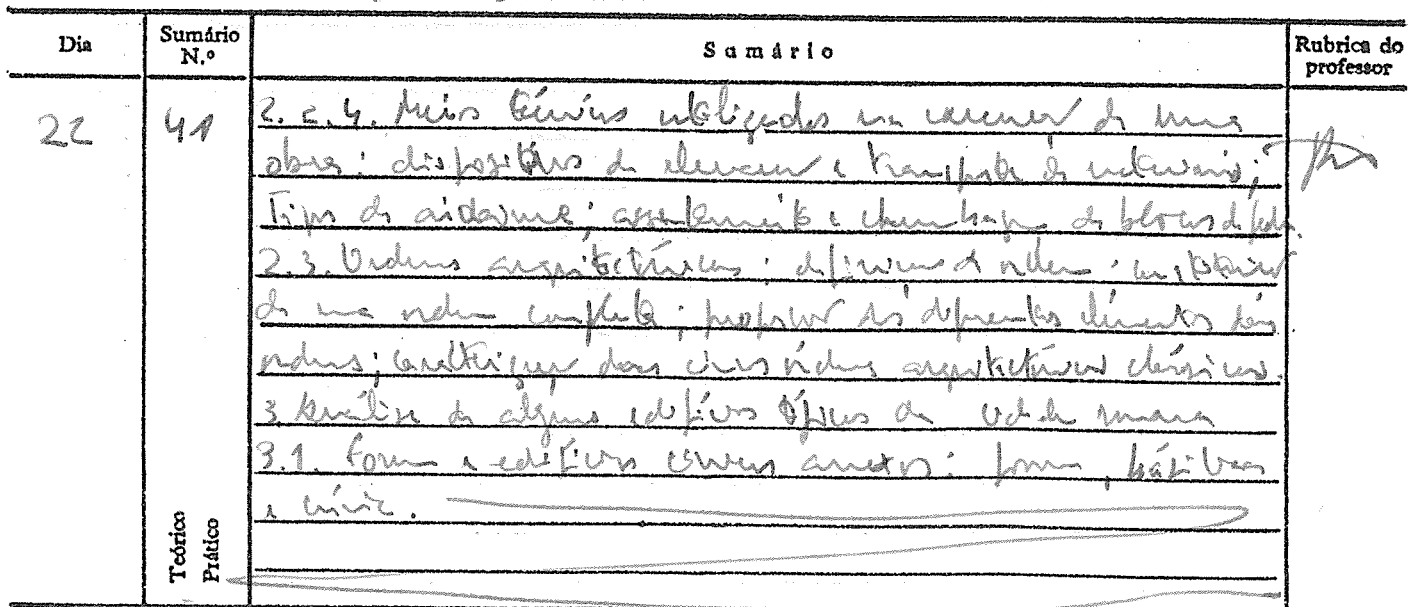 Dia
Sumário N.º
Sumário
Rubrica do professor
22
41
2.2.4. Meios técnicos utilizados na execução de uma
obra: dispositivos de elevação e transporte de materiais;
Tipos de andaime; assentamento e chumbagem de blocos de pedra.
2.3. Ordens arquitectónicas: definição de ordem; constituição
de uma ordem completa; proporção dos diferentes elementos das
ordens; caracterização das cinco ordens arquitectónicas clássicas.
3. Análise de alguns edifícios típicos da
3.1. Forum e edifícios cívicos anexos: forum, basílica
e cúria.
Teórico
Prático